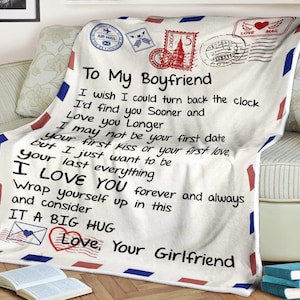 LOVE MAIL
To My Boyfriend
I wish I could turn back the clock
I'd find you Sooner and
Love you Longer
I may not be your first date
your first kiss or your first love
but I just want to be
your last everything
I LOVE YOU forever and always
Wrap yourself up in this
and consider
IT A BIG HUG
Love, Your Girlfriend